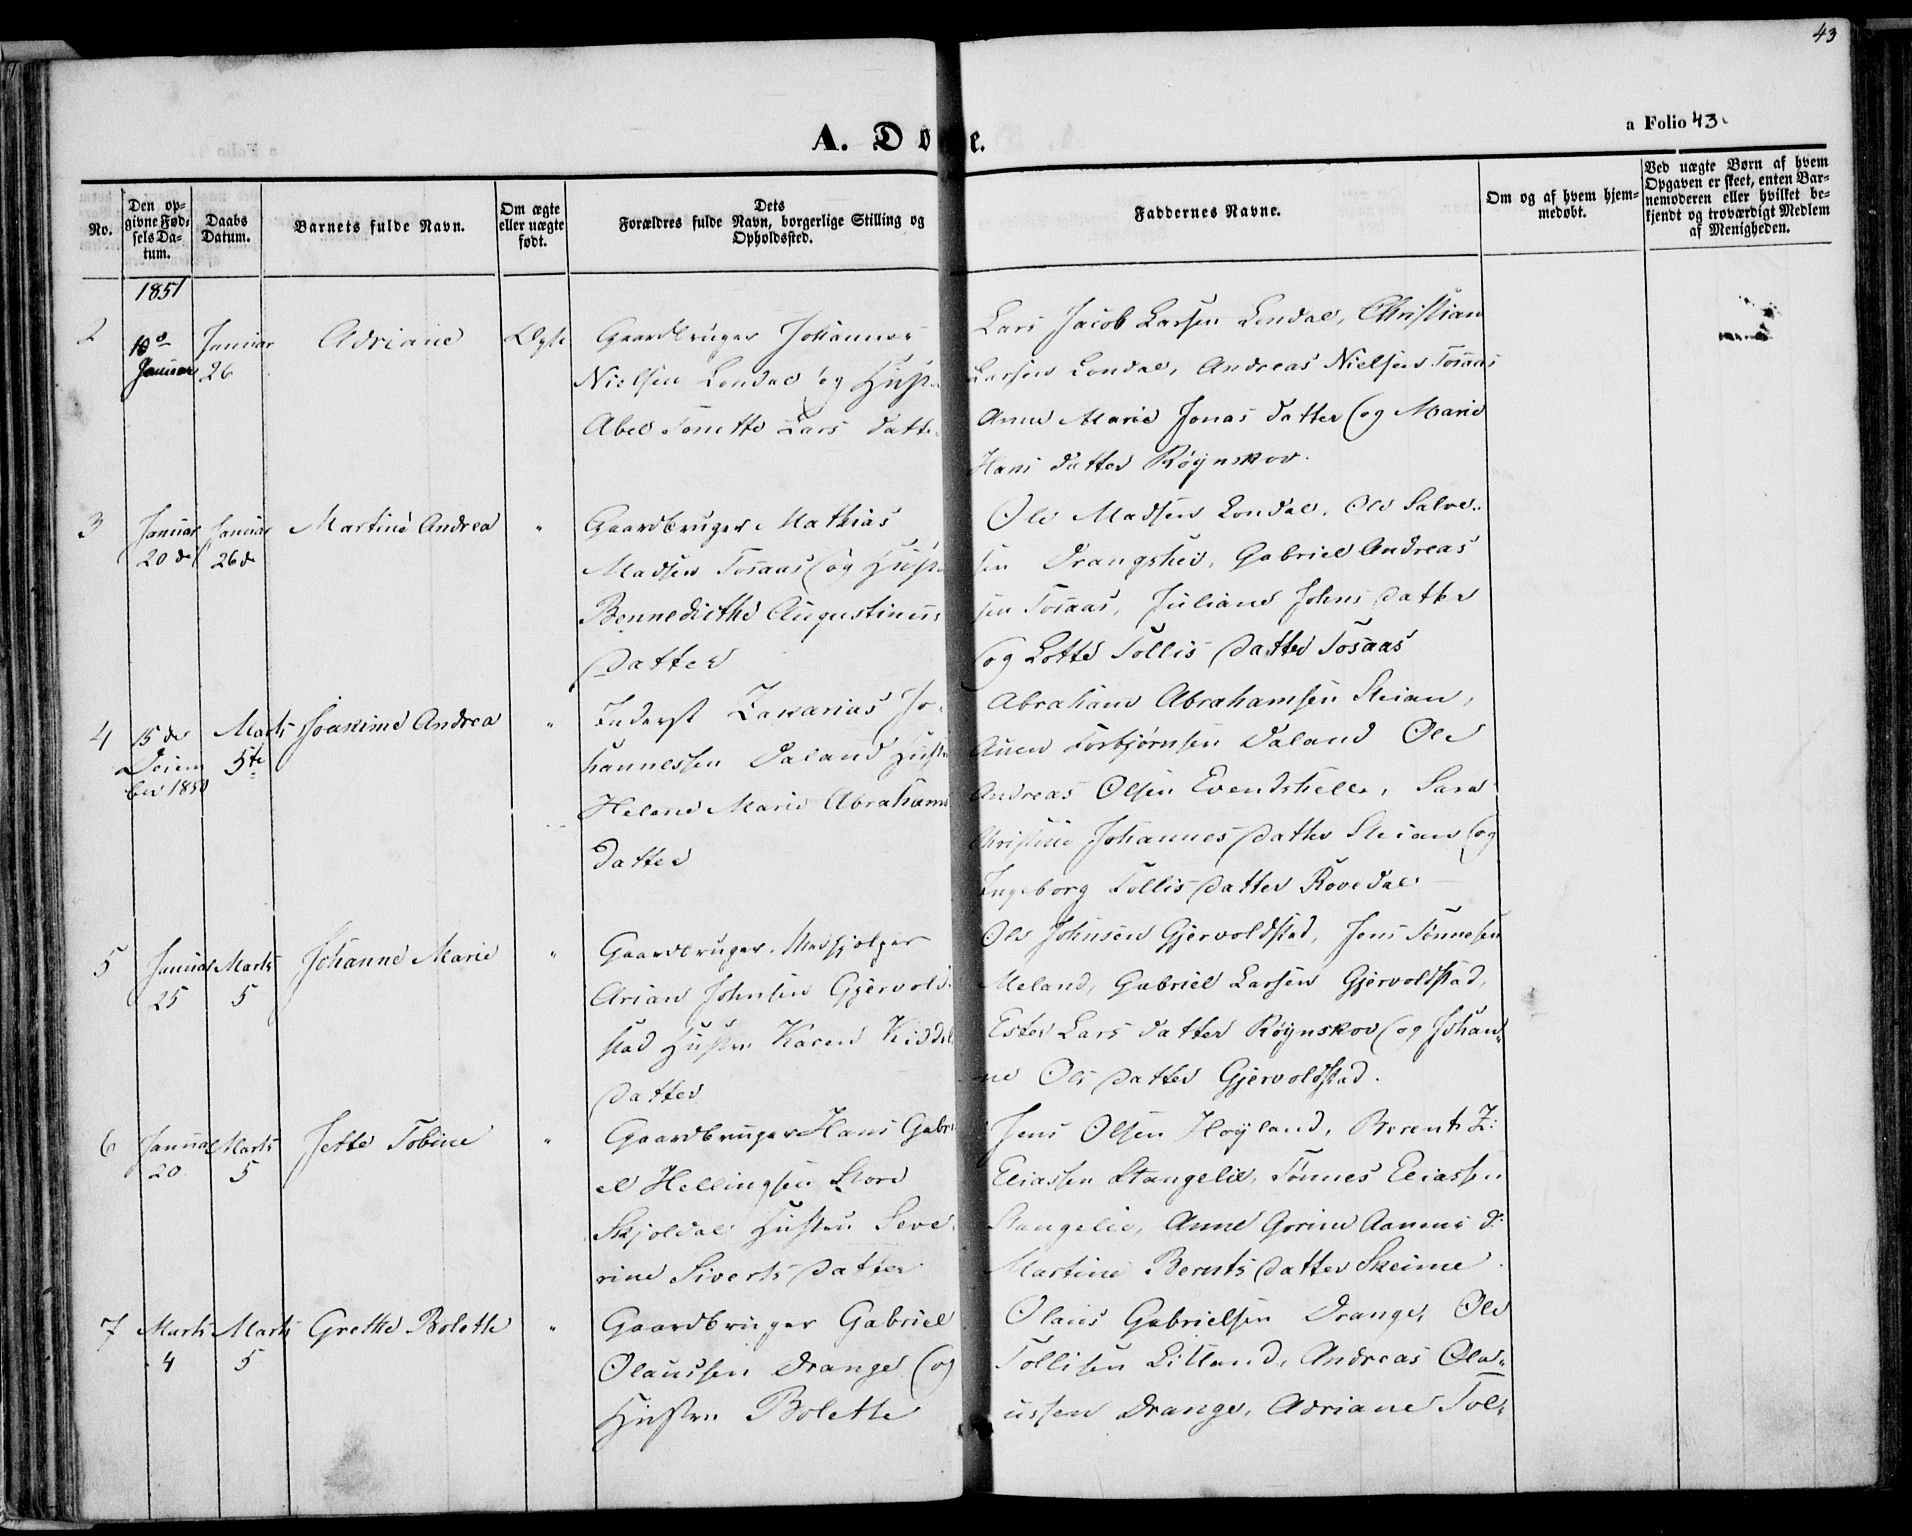 43
A. Døbte.
a Folio 43.
No.
Den op-
givne Fød-
sels Da-
tum.
Daabs
Datum.
Barnets fulde Navn.
Om ægte
eller uægte
født.
Dets
Forældres fulde Navn, borgerlige Stilling og
Opholdssted.
Faddernes Navne.
Om og af hvem hjem-
medøbt.
Ved uægte Børn af hvem
Opgaven er skeet, enten Bar-
nemoderen eller hvilket be-
kjendt og troværdigt Medlem
af Menigheden.
1851
2
10de
Januar
Januar
26
Adriane
Ægte
Gaardbruger Johannes
Nielsen Londal og Hust
Abel Tonette Lars Datte
Lars Jacob Larsen Londal, Christian
Larsen Londal, Andreas Nielsen Tosaas
Anne Marie Jonas Datter og Marie
Hans Datter Røynskov.
3
Januar
20de
Januar
26de
Martine Andrea
"
Gaardbruger Mathias
Madsen Tosaas og Hust
Bennedicthe Augustinus
Datter
Ole Madsen Londal, Ole Salve-
sen Drangshei, Gabriel Andreas
sen Tosaas, Juliane Johns Datter
og Lotte Tollis Datter Tosaas
4
15de
Decem
ber 1850
Marts
5te
Joakime Andrea
"
Inderst Zakarias Jo-
hannessen Daland Hust
Helene Marie Abrahams
Datter
Abraham Abrahamsen Steian,
Aanen Torbjørnsen Daland Ole
Andreas Olsen Evendshelle, Sara
Christine Johannes Datter Steian og
Ingeborg Tollis Datter Rovedal
5
Januar
25
Marts
5
Johanne Marie
"
Gaardbruger Medhjelper
Arian Johnsen Gjervold
stad Hustru Karen Kiddel
Datter
Ole Johnsen Gjervoldstad, Jens Tønnesen
Meland, Gabriel Larsen Gjervoldstad,
Ester Lars Datter Røynskov og Johan-
ne Ols Datter Gjervoldstad.
6
Januar
20
Marts
5
Jette Tobine
"
Gaardbruger Hans Gabri
el Hellingsen Store
Skjoldal Hustru Seve
rine Siverts Datter
Jens Olsen Høyland, Berent Z:
Eliassen Stangelie, Tønnes Eliassen
Stangelie, Anne Gorine Aanens d:
Martine Bernts Datter Skeime.
7
Marts
4
Marts
5
Grethe Bolette
"
Gaardbruger Gabriel
Olaussen Drange og
Hustru Bolette
Olaus Gabrielsen Drange, Ole
Tollisen Litland, Andreas Ola-
ussen Drange, Adriane Tol-